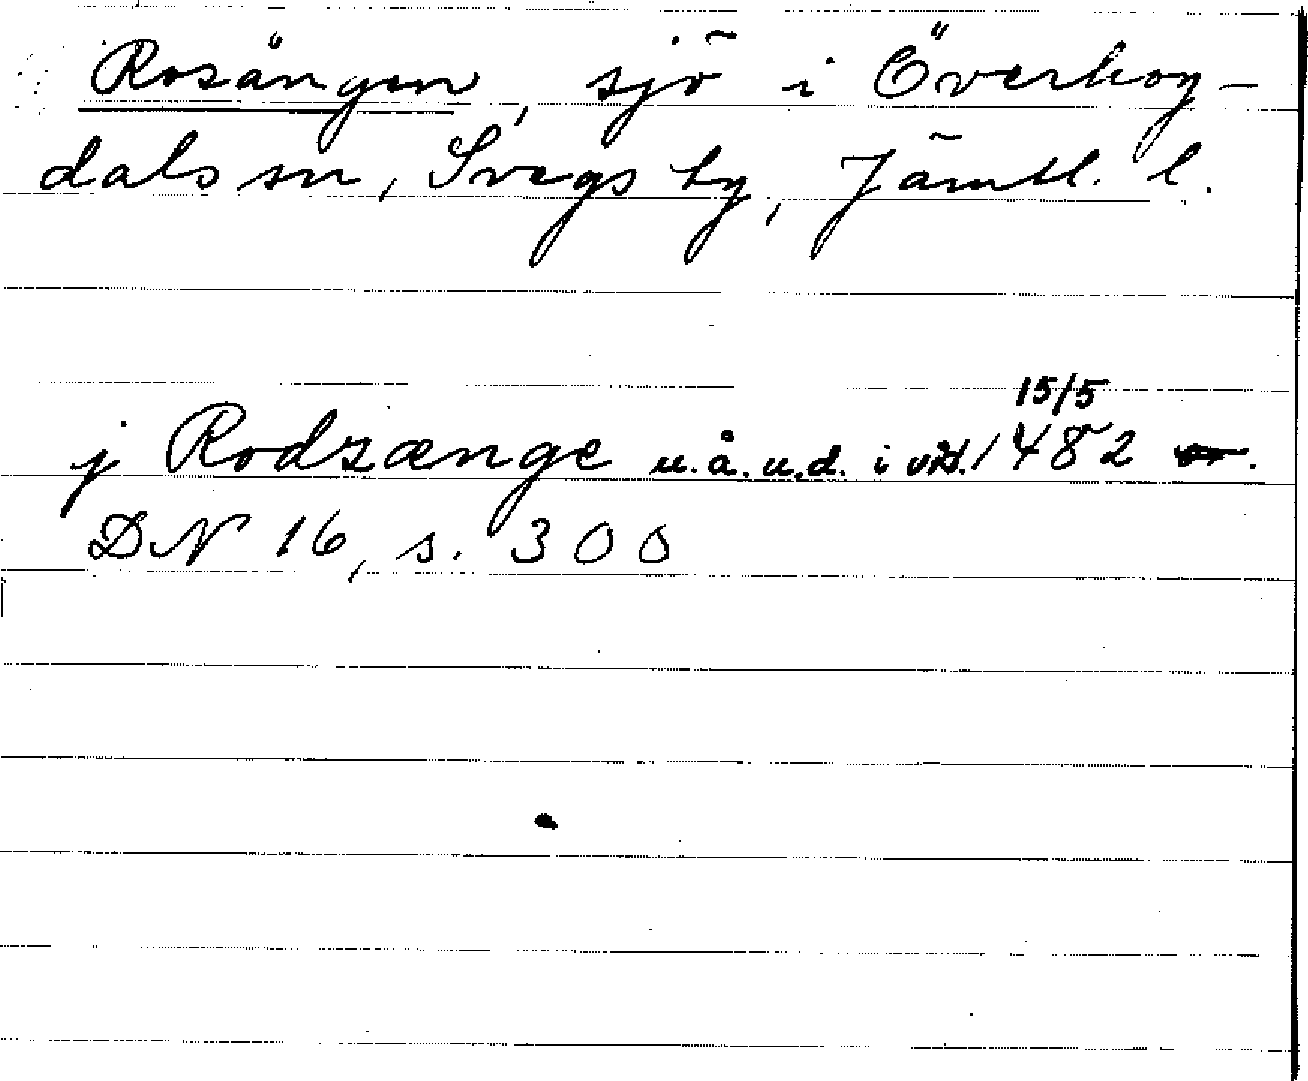 Rosängen, sjö i Överhog-
dals sn, Svegs tg, Jämtl. l.
15/5
j Rodzænge u.å.u.d. i vid. 1482
DN 16, s. 300